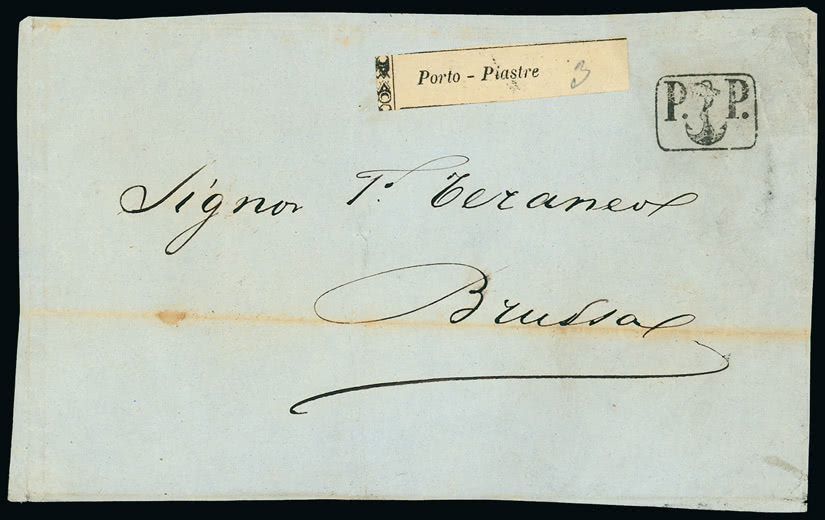 Porto - Piastre 3
P. P.
Signor T. Teraneo
Brussa